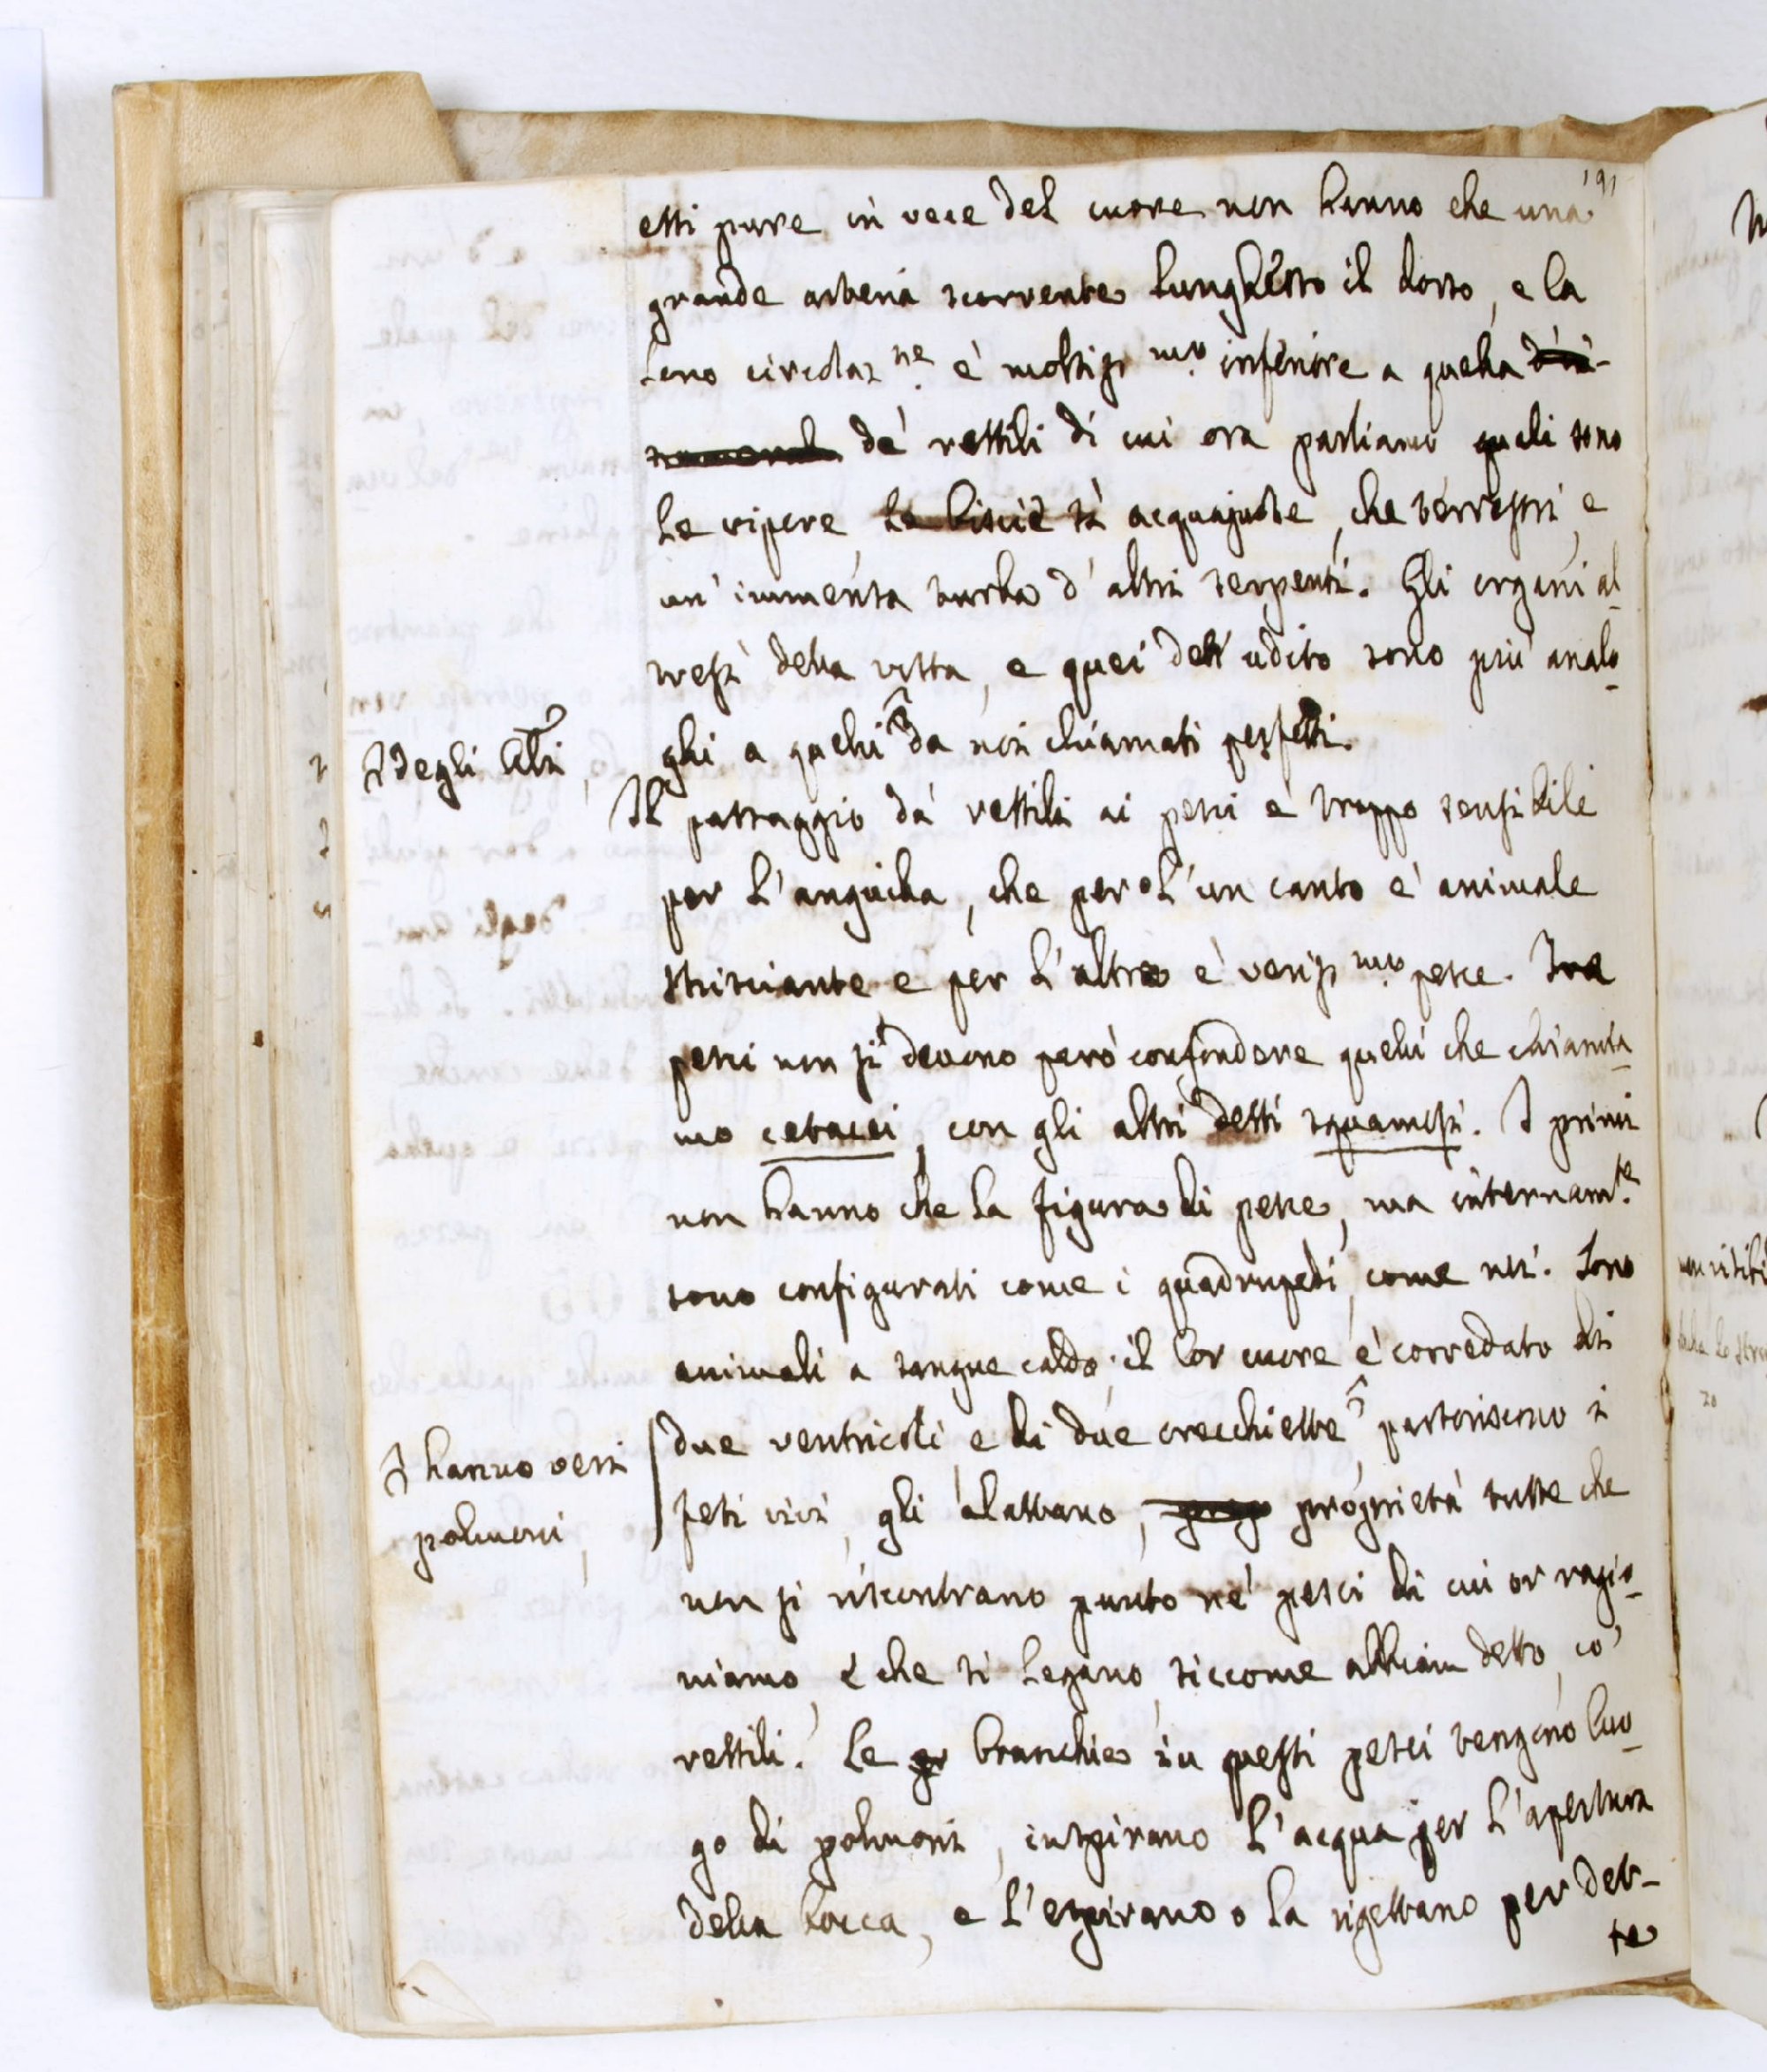 191
essi pure in vece del cuore non hanno che una
grande arteria scorrente lunghesso il dosso, e la
loro circolaz.ne è moltiss.mo inferiore a quella
de' rettili di cui ora parliamo quali sono
le vipere, le biscie sì acquajuole, che terrestri, e
un' immensa turba d' altri serpenti. Gli organi al-
tresì della vista, e quei dell' udito sono più analo-
ghi a quelli da noi chiamati perfetti.
degli Alri,
Il passaggio da' rettili ai pesci è troppo sensibile
per l' anguilla, che per l' un canto è animale
strisciante e per l' altro è veriss.mo pesce. Tra
pesci non si devono però confondere quelli che chiamia-
mo cetacei, con gli altri detti squamosi. I primi
non hanno che la figura di pesce, ma internam.te
sono configurati come i quadrupedi, come noi. Sono
animali a sangue caldo; il lor cuore è corredato di
due ventricoli, e di due orecchiette, partoriscono i
hanno veri
polmoni,
feti vivi, gli alattano, proprietà tutte che
non si riscontrano punto ne' pesci di cui or ragio-
niamo, e che si legano, siccome abbiam detto, co'
rettili. Le branchie in questi pesci tengono luo-
go di polmoni, inspirano l' acqua per l' apertura
della bocca, e l' espirano o la rigettano per det-
te